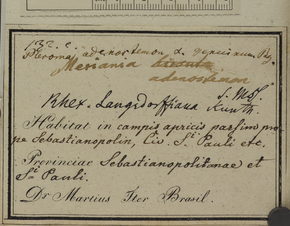 adenostemon
Meriania
adenostemon
S. Mss.
Rhex. Langsdorffiana Kunth.
Habitat in campis apricis passim pro-
pe Sebastianopolin, Civ. St. Pauli etc.
Provinciae Sebastianopolitanae et
St. Pauli.
Dr Martius Iter Brasil.